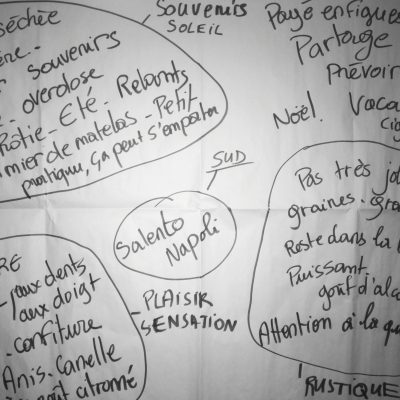 séchée
Souvenirs
SOLEIL
ère..
souvenirs
- overdose
Rôtie - Eté - Relents
mier de matelas - Petit
pratique, ça peut s'emporter
Payé en figues
Partage
Prévoir
Noël. Vaca
SUD
Salento
Napoli
Pas très jol
graines. gra
Reste dans la
Puissant.
goût d'alc
Attention à la qu
RUSTIQUE
RE
- / aux dents
/ aux doigt
- confiture
Anis. Canelle
goût citronné
- PLAISIR
SENSATION